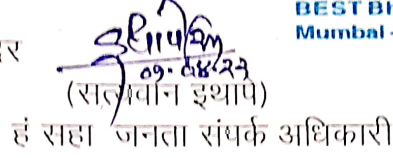 BEST Bh
Mumbai -
र
०१.०४.२२
(सत्यवान इथापे)
हं सहा जनता संपर्क अधिकारी